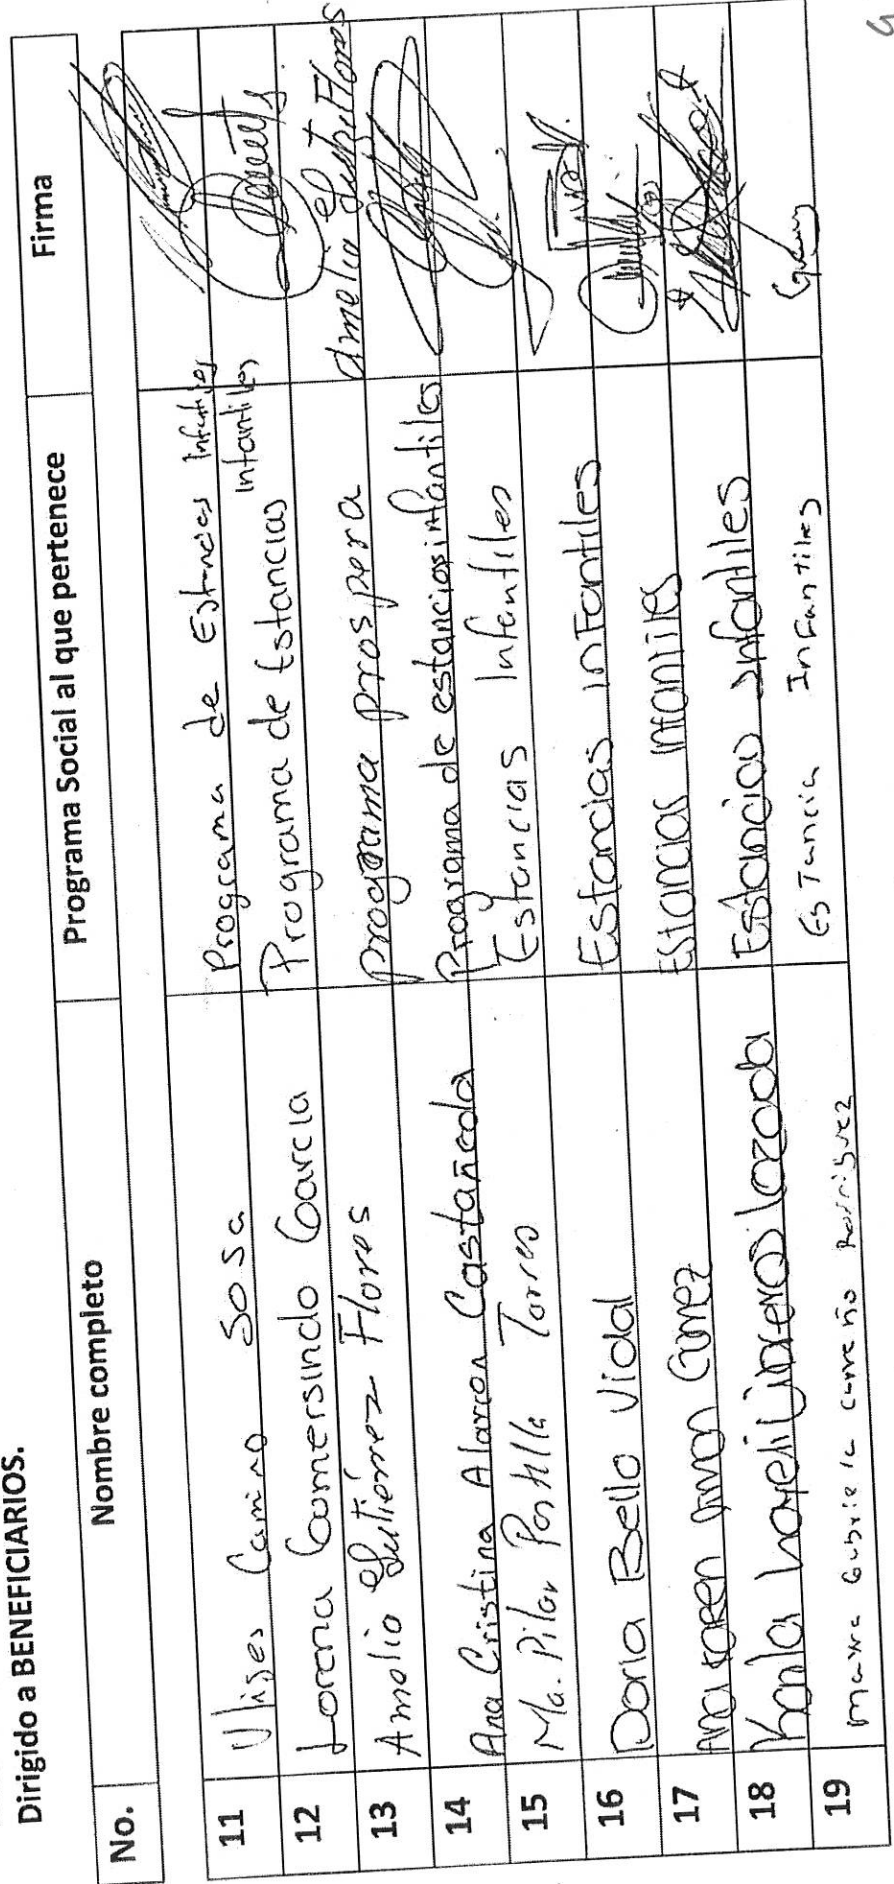 Dirigido a BENEFICIARIOS.
No. Nombre completo Programa Social al que pertenece Firma
11 Ulises Camino Sosa Programa de Estancias Infantiles
12 Lorena Gomersindo Garcia Programa de Estancias Infantiles
13 Amelia Gutiérrez Flores programa prospera Amelia Gutiérrez Flores
14 Ana Cristina Alarcon Castañeda Programa de estancias infantiles
15 Ma. Pilar Portilla Torres Estancias Infantiles
16 Doria Bello Vidal Estancias infantiles
17 Ana Karen Gomez Estancias infantiles
18 Karla Nayeli Lozada Estancias Infantiles
19 mayra Gabriela carreño Rodriguez Estancia Infantiles